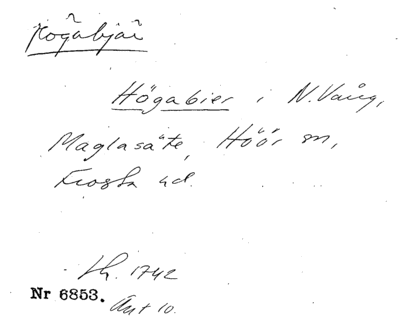 Högabjär
Högabier i N. Vång,
Maglasäte, Höör sn,
Frosta hd.
Lh. 1742
Nr 6853. Akt 10.